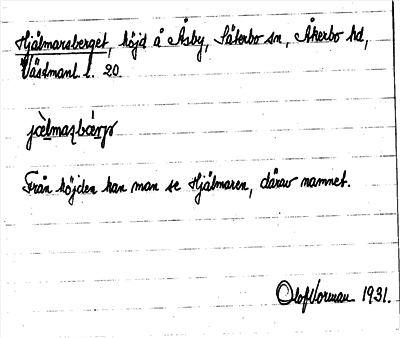 Hjälmaresberget, höjd å Åsby, Säterbo sn, Åkerbo hd,
Västmanl. l. 20
Från höjden kan man se Hjälmaren, därav namnet.
Olof Norman 1931.